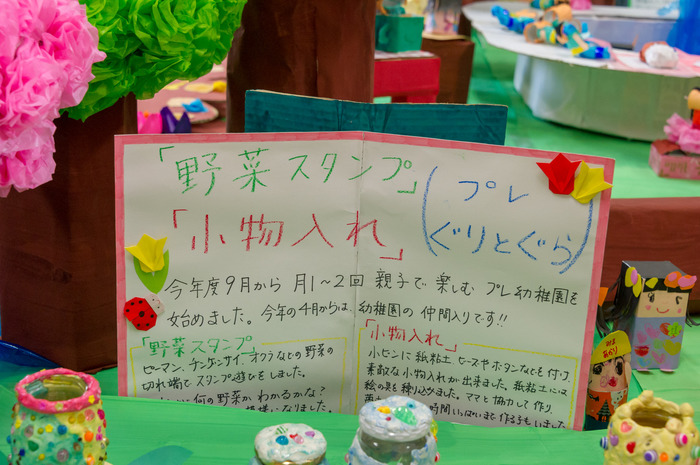 「野菜スタンプ」
「小物入れ」
(プレ
ぐりとぐら)
今年度9月から 月1~2回 親子で 楽しむ プレ幼稚園を
始めました。今年の4月からは、幼稚園の 仲間入りです!!
「野菜スタンプ」
ピーマン、チンゲンサイ、オクラなどの野菜の
切れ端で スタンプ遊びをしました。
何の野菜か、わかるかな?
になりました。
「小物入れ」
小ビンに 紙粘土、ビーズやボタンなどを 付け、
素敵な 小物入れが 出来ました。紙粘土には
絵の具を 練り込みました。ママと 協力して 作り、
時間いっぱいまで 作る子もいました